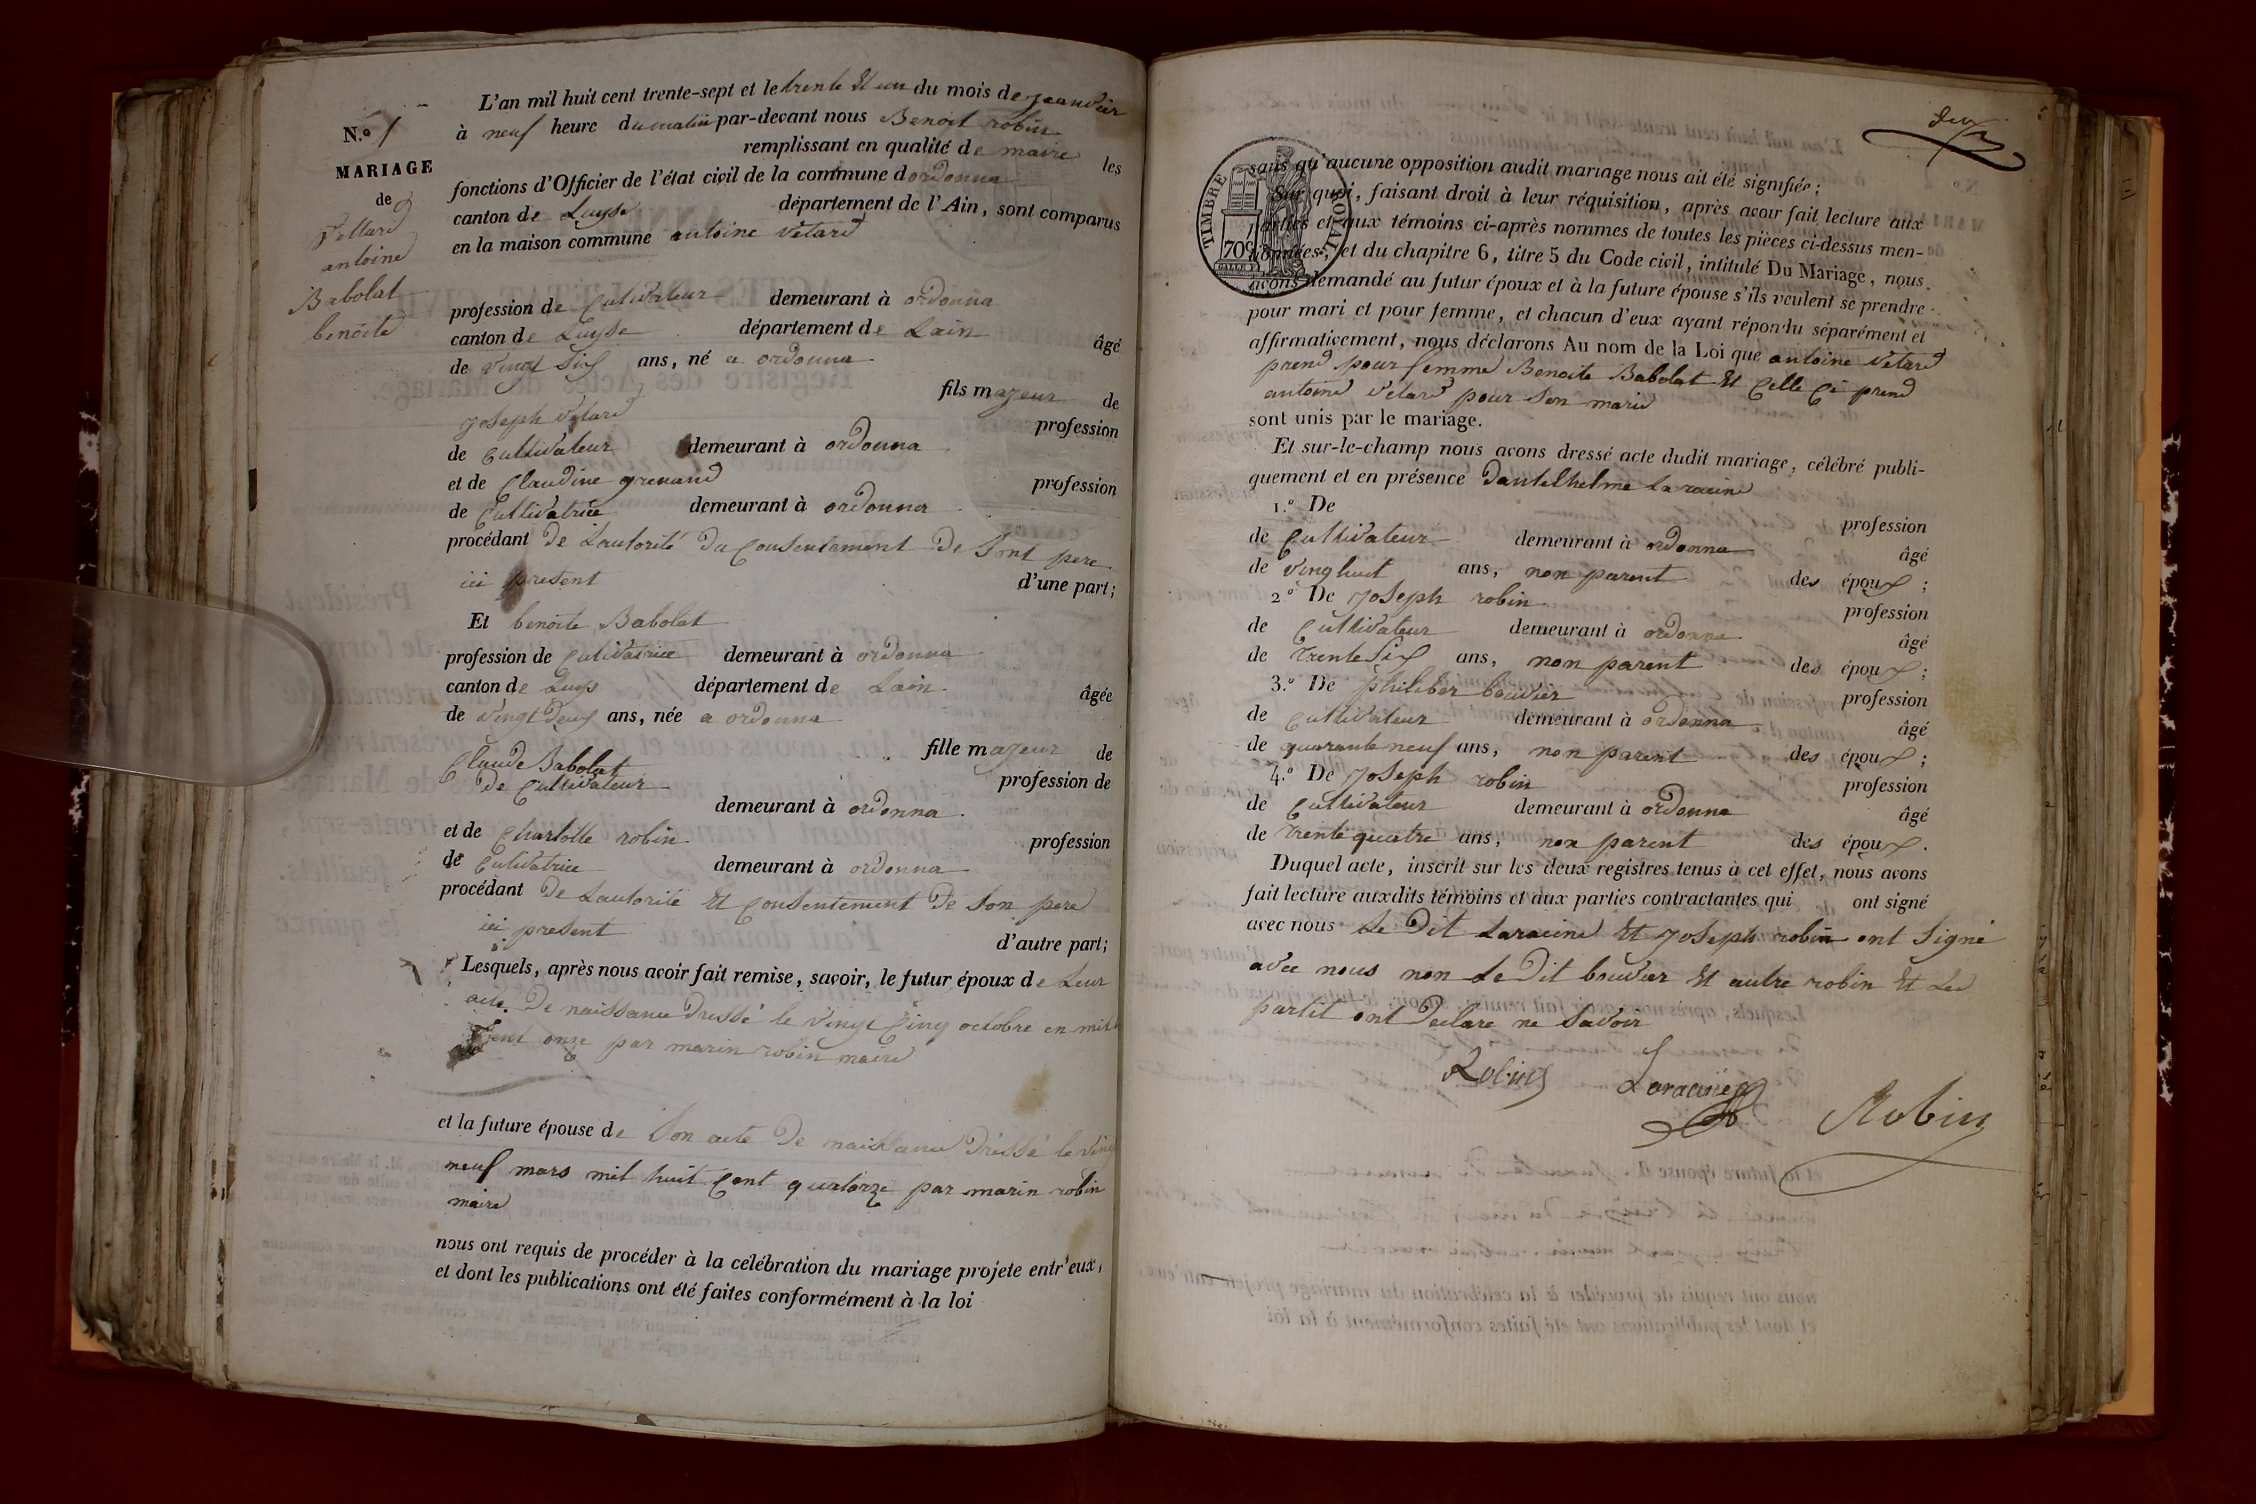 N.º 1
MARIAGE
de
Vettard
antoine
Babolat
benoite
L'an mil huit cent trente-sept et le trente Et un du mois de jeanvier
à neuf heure du matin par-devant nous Benoit robin
remplissant en qualité de maire les
fonctions d'Officier de l'état civil de la commune dordonna
canton de Luyse département de l'Ain, sont comparus
en la maison commune antoine vétard
profession de Cutivateur demeurant à ordonna
canton de Luyse département de Lain âgé
de vingt Six ans, né a ordonna
fils mazeur de
joseph vétard profession
de Cultivateur demeurant à ordonna
et de Claudine grenand profession
de Cultivatrice demeurant à ordonna
procédant de Lautorité du Consentement de Sont pere
ici present d'une part;
Et benoite Babolat
profession de Cutivatrice demeurant à ordonna
canton de Luys département de Lain âgée
de vingt deux ans, née a ordonna
fille mazeur de
Claude Babolat profession de
de Cultivateur
demeurant à ordonna
et de Charlotte robin profession
de Cutivatrice demeurant à ordonna
procédant de Lautorité Et Consentement de Son pere
ici present d'autre part;
Lesquels, après nous avoir fait remise, savoir, le futur époux de Leur
acte de naissance dressé le vingt Cinq octobre en mil
Cent onze par marin robin maire
et la future épouse de Son acte de naissance dressé le ving
neuf mars mil huit Cent quatorze par marin robin
maire
nous ont requis de procéder à la célébration du mariage projete entr'eux,
et dont les publications ont été faites conformément à la loi
deux
TIMBRE ROYAL
70c
sans qu'aucune opposition audit mariage nous ait été signifiée;
Sur quoi, faisant droit à leur réquisition, après avoir fait lecture aux
parties et aux témoins ci-après nommes de toutes les pièces ci-dessus men-
tionnées, et du chapitre 6, titre 5 du Code civil, intitulé Du Mariage, nous
avons demandé au futur époux et à la future épouse s'ils veulent se prendre
pour mari et pour femme, et chacun d'eux ayant répondu séparément et
affirmativement, nous déclarons Au nom de la Loi que antoine vétard
prend pour femme Benoite Babolat Et Celle Ci prend
antoine vétard pour Son marie
sont unis par le mariage.
Et sur-le-champ nous avons dressé acte dudit mariage, célébré publi-
quement et en présence dantelhelme Laracine
1.º De profession
de Cultivateur demeurant à ordonna âgé
de vinghuit ans, non parent des époux;
2.º De joseph robin profession
de Cultivateur demeurant à ordonna âgé
de trente Six ans, non parent des époux;
3.º De philiber bouvier profession
de Cultivateur demeurant à ordonna âgé
de quarante neuf ans, non parent des époux;
4.º De joseph robin profession
de Cultivateur demeurant à ordonna âgé
de trente quatre ans, non parent des époux.
Duquel acte, inscrit sur les deux registres tenus à cet effet, nous avons
fait lecture auxdits témoins et aux parties contractantes qui ont signé
avec nous Le dit Laracine Et joseph robin ont Signé
avec nous non Le dit bouvier Et autre robin Et Les
partit ont declare ne Savoir
Robin Laracine
Robin